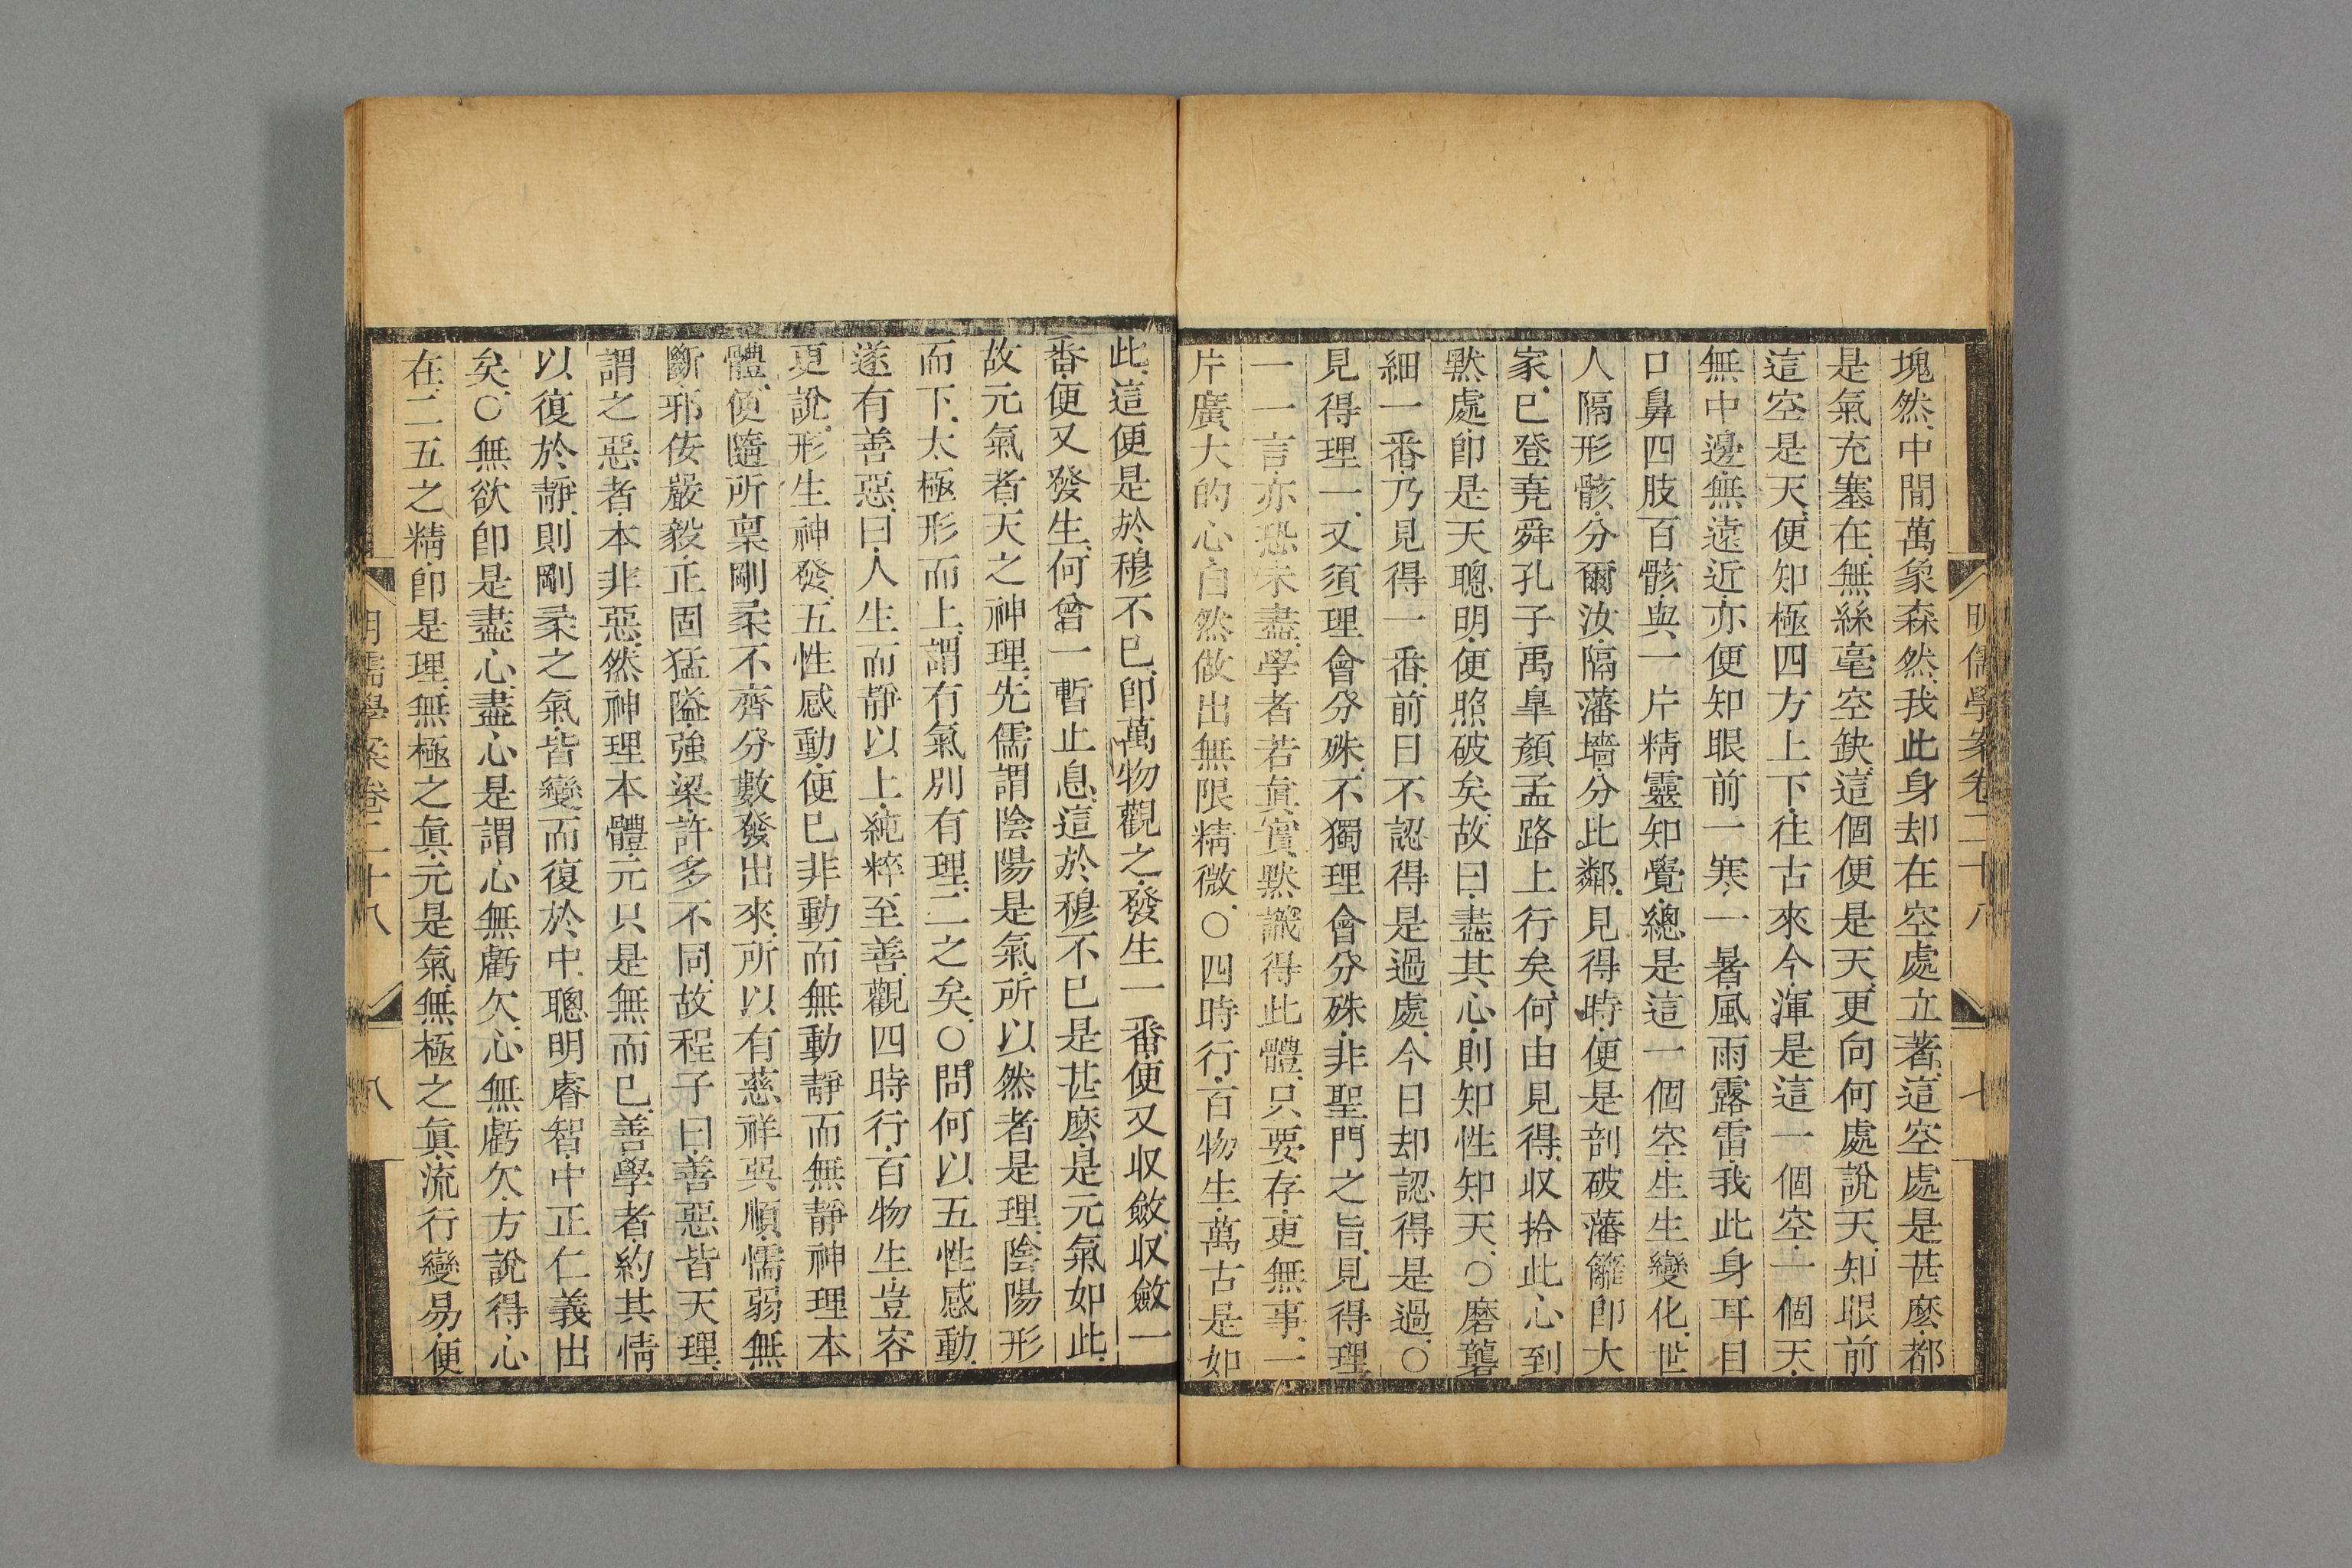 明儒學案卷二十八 七
塊然、中間萬象森然、我此身却在空處立著、這空處是甚麽、都
是氣充塞在、無絲毫空缺、這個便是天、更向何處說天、知眼前
這空是天、便知極四方上下、往古來今、渾是這一個空、一個天、
無中邊、無遠近、亦便知眼前一寒、一暑、風雨露雷、我此身耳目
口鼻四肢百骸、與一片精靈知覺、總是這一個空、生生變化、世
人隔形骸、分爾汝、隔藩墻、分比鄰、見得時、便是剖破藩籬、卽大
家、已登堯舜孔子禹皐顏孟路上行矣、何由見得、収拾此心到
默處、卽是天聰明、便照破矣、故曰、盡其心、則知性知天、○磨礱
細一番、乃見得一番、前日不認得是過處、今日却認得是過、○
見得理一、又須理會分殊、不獨理會分殊、非聖門之旨、見得理
一一言亦恐未盡、學者若眞實默識得此體、只要存、更無事、一
片廣大的心、自然做出無限精微、○四時行、百物生、萬古是如
此、這便是於穆不已、卽萬物觀之、發生一番、便又収斂、収斂一
番、便又發生、何曾一暫止息、這於穆不已是甚麽、是元氣如此、
故元氣者、天之神理、先儒謂陰陽是氣、所以然者是理、陰陽形
而下、太極形而上、謂有氣別有理、二之矣、○問何以五性感動、
遂有善惡、曰、人生而靜以上、純粹至善、觀四時行、百物生、豈容
更說、形生神發、五性感動、便已非動而無動、靜而無靜、神理本
體、便隨所稟剛柔不齊、分數發出來、所以有慈祥巽順、懦弱、無
斷、邪佞、嚴毅、正固、猛隘、強梁、許多不同、故程子曰、善惡皆天理、
謂之惡者、本非惡、然神理本體、元只是無而已、善學者、約其情
以復於靜、則剛柔之氣、皆變而復於中、聰明睿智、中正仁義出
矣、○無欲卽是盡心、盡心是謂心無虧欠、心無虧欠、方說得心
在、二五之精、卽是理、無極之眞、元是氣、無極之眞、流行變易、便
明儒學案卷二十八 八